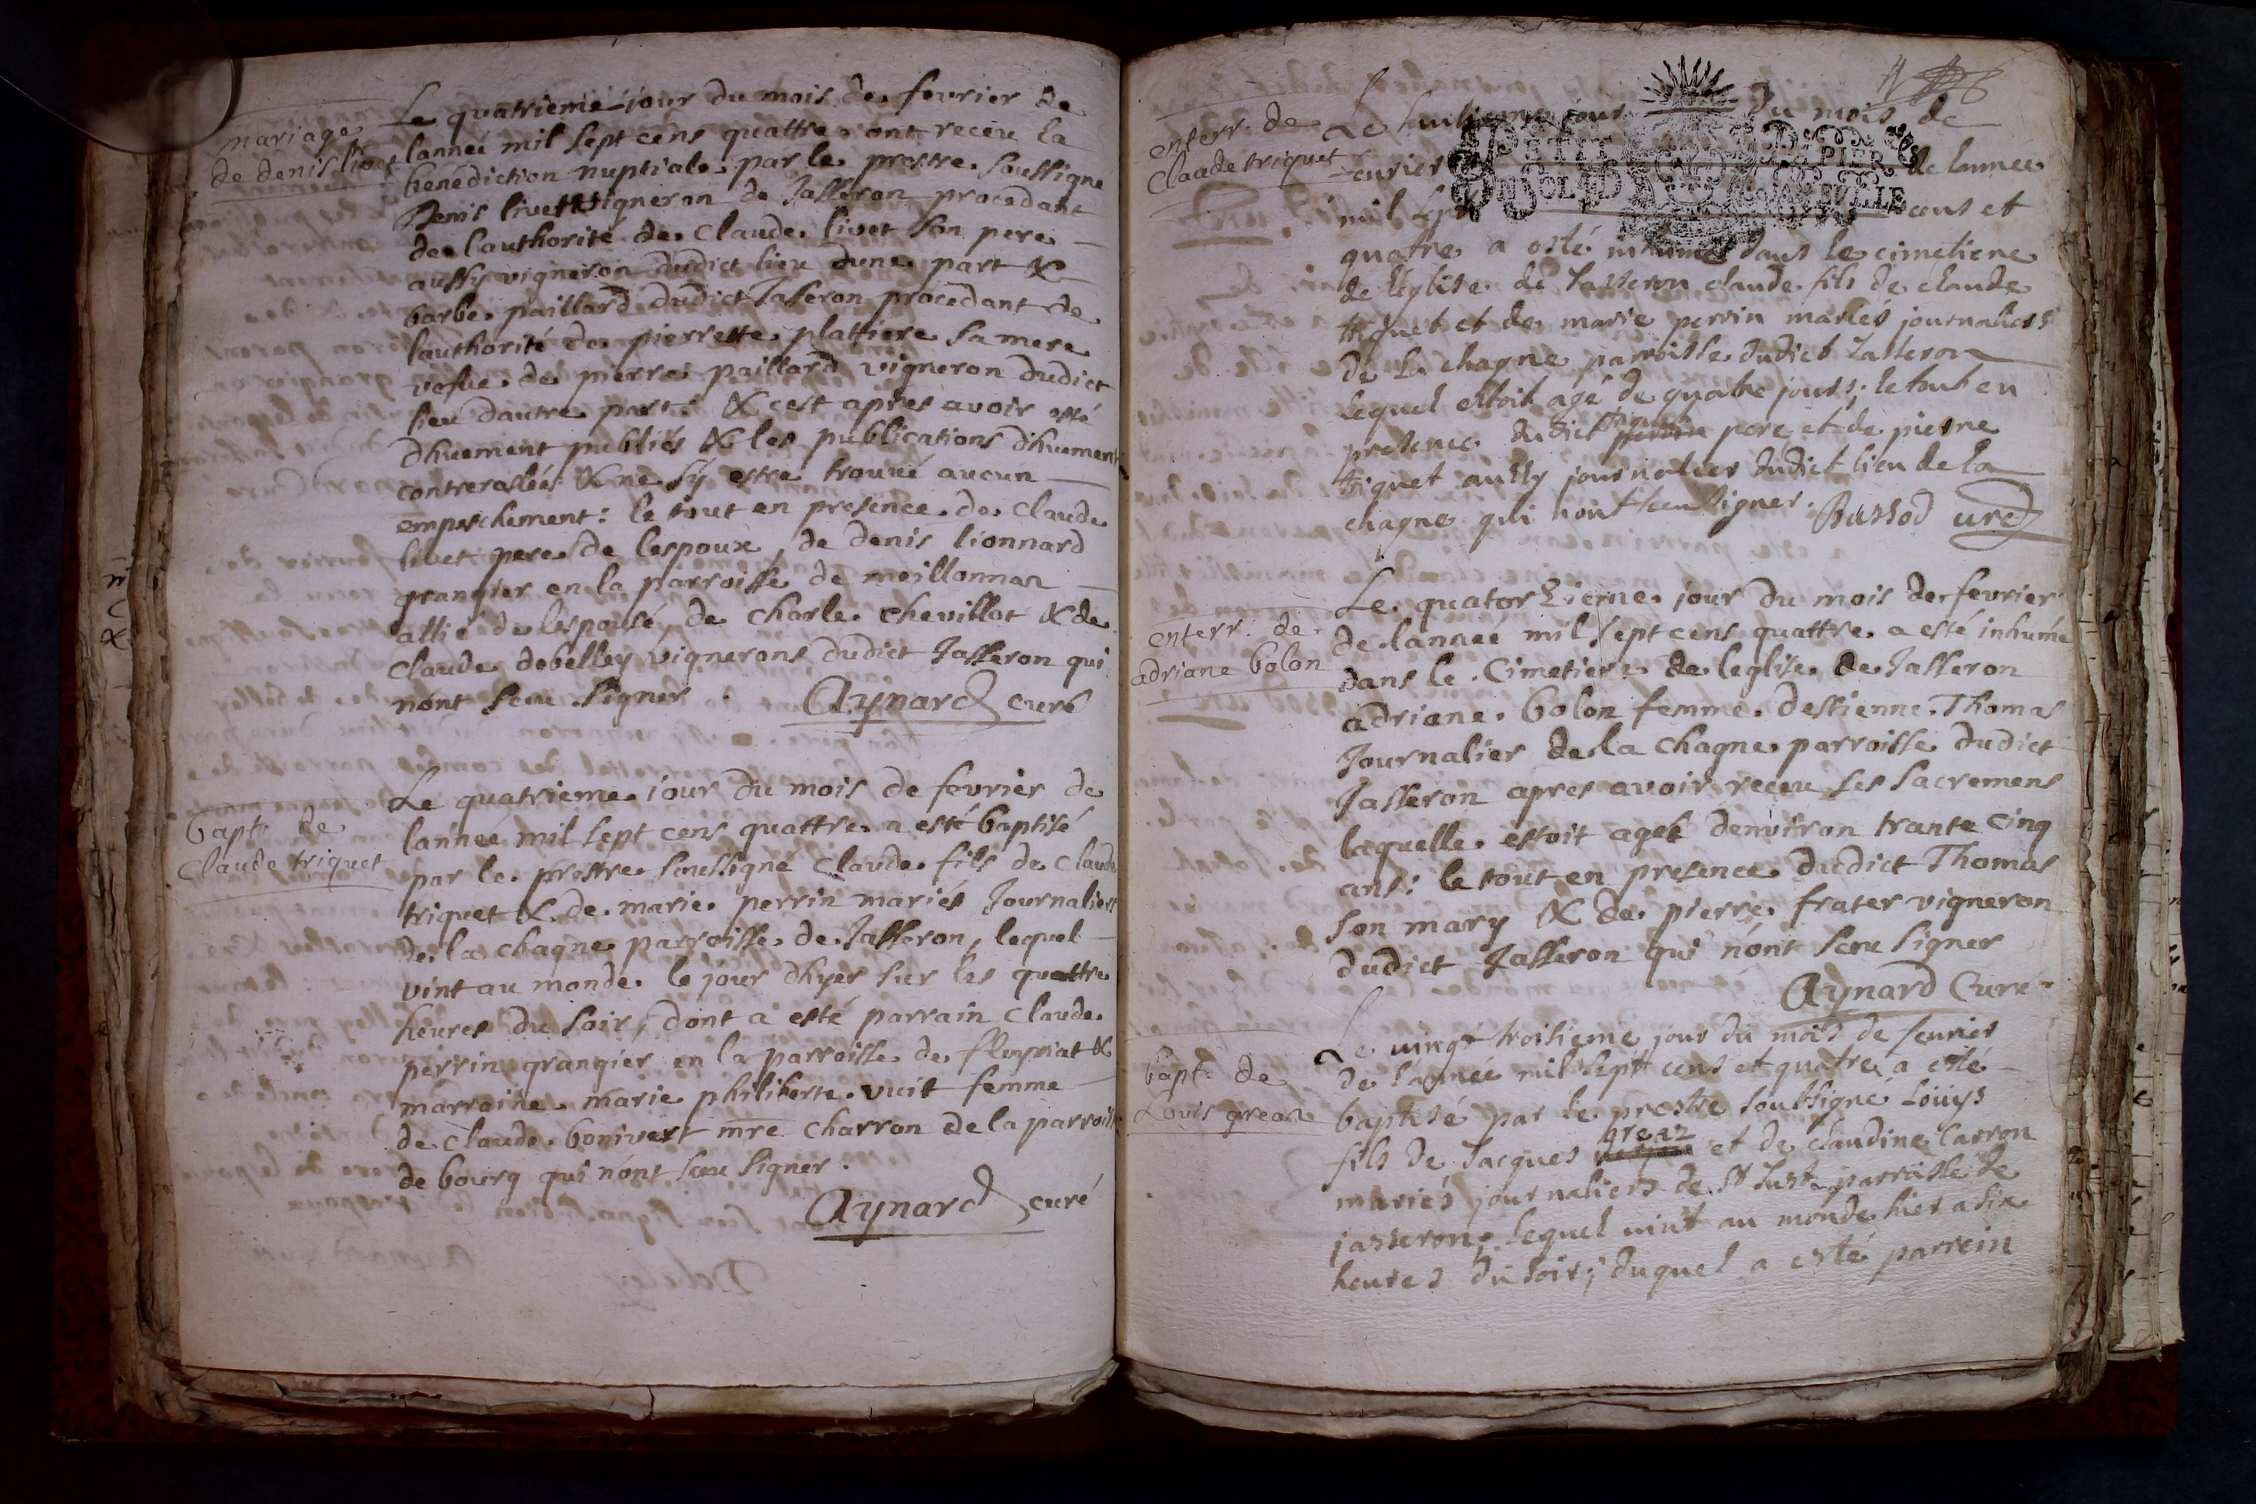 mariage
de denis livet
Le quatrieme jour du mois de fevrier de
lanneé mil sept cens quattre ont receu la
benediction nuptiale par le prestre soussigne
Denis livet vigneron de Jasseron procedant
de lauthorité de Claude livet son pere
aussy vigneron dudict lieu dune part &
barbe paillard dudict Jasseron procedant de
lauthorité de pierrette plattiere sa mere
vefue de pierre paillard vigneron dudict
lieu dautre part & cest apres avoir esté
dhuement publiés & les publications dhuement
controrolleés & ne sy estre trouvé aucun
empeschement : le tout en presence de Claude
livet pere de lespoux, de denis lionnard
grangier en la parroisse de meillonnaz
allié de lespousé, de Charle Chevillot & de
Claude debelley vignerons dudict Jasseron qui
nont sceu signer . Aynard curé
bapt. de
Claude triquet
Le quatrieme jour du mois de fevrier de
lanneé mil sept cens quattre a esté baptisé
par le prestre soussigné Claude fils de Claude
triquet & de marie perrin mariés Journaliers
de la chagne parroisse de Jasseron, lequel
vint au monde le jour dhyer sur les quattre
heures du soir, dont a esté parrain Claude
perrin grangier en la parroisse de fleyriat &
marraine marie philiberte vuit femme
de Claude bonivert mre charron de la parroisse
de bourg qui nont sceu signer .
Aynard curé
enterr. de
Claude triquet
Le huitieme jour du mois de
feurier de lannee
PETIT PAPIER
mil sept cens et
quatre a esté inhumé dans le cimetiere
de leglise de Jasseron claude fils de claude
triquet et de marie perrin mariés journaliers
de la chagne parroisse dudict Jasseron
lequel estoit agé de quatre jours ; le tout en
presence dudict triquet pere et de pierre
triquet aussy journalier dudict lieu de la
chagne qui nont sceu signer . Bussod curé
enterr. de
adriane bolon
Le quatorzieme jour du mois de fevrier
de lanneé mil sept cens quattre a esté inhumé
dans le Cimetiere de leglise de Jasseron
adriane bolon femme destienne Thomas
Journalier de la chagne parroisse dudict
Jasseron apres avoir receu ses sacremens
laquelle estoit ageé denviron trante cinq
ans : le tout en presence dudict Thomas
son mary & de pierre frater vigneron
dudict Jasseron qui nont sceu signer
Aynard Curé
bapt. de
Louis greaz
Le vingt troisieme jour du mois de feurier
de lannée mil sept cens et quatre a esté
baptisé par le prestre soussigné Loüys
fils de Jacques greaz et de claudine Carron
mariés journaliers de St Just parroisse de
jasseron ; lequel uint au monde hier a six
heures du soir ; duquel a esté parrein